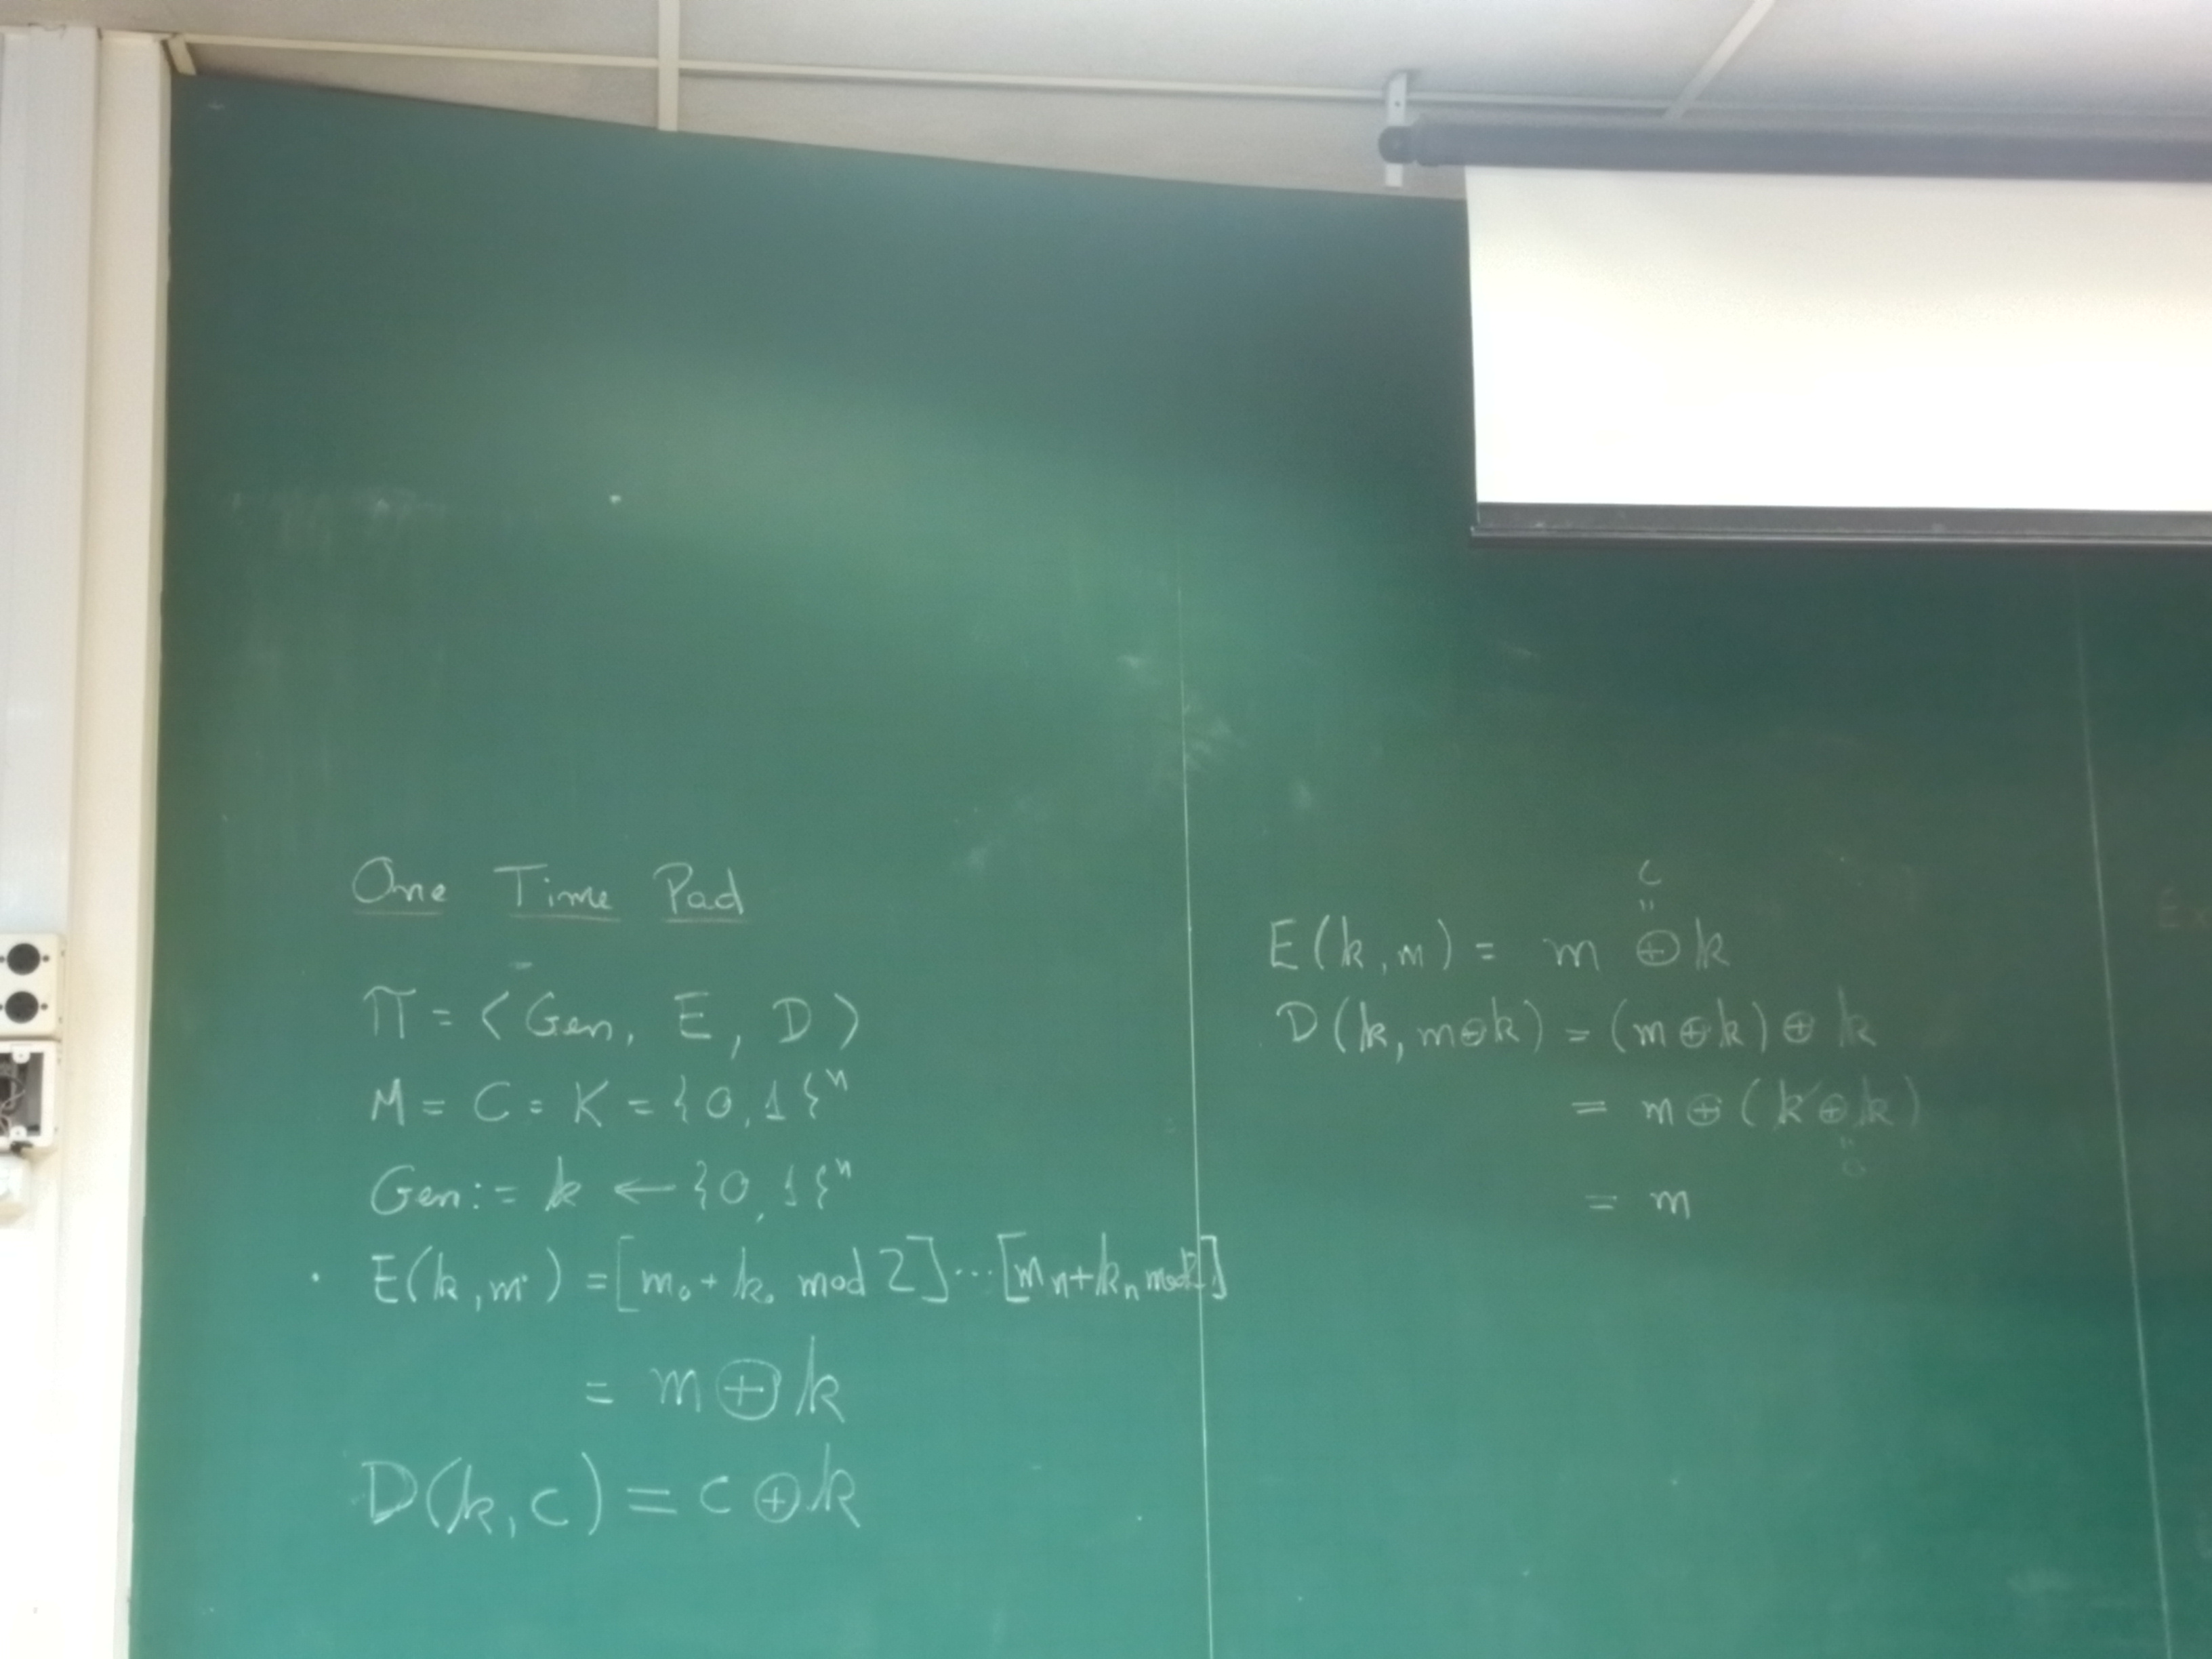 One Time Pad
Π = ⟨Gen, E, D⟩
M = C = K = {0,1}ⁿ
Gen := k ← {0,1}ⁿ
· E(k,m) = [m₀ + k₀ mod 2] ... [mₙ + kₙ mod 2]
= m ⊕ k
D(k,c) = c ⊕ k
c
"
E(k,m) = m ⊕ k
D(k, m⊕k) = (m⊕k) ⊕ k
= m ⊕ (k⊕k)
"
0
= m